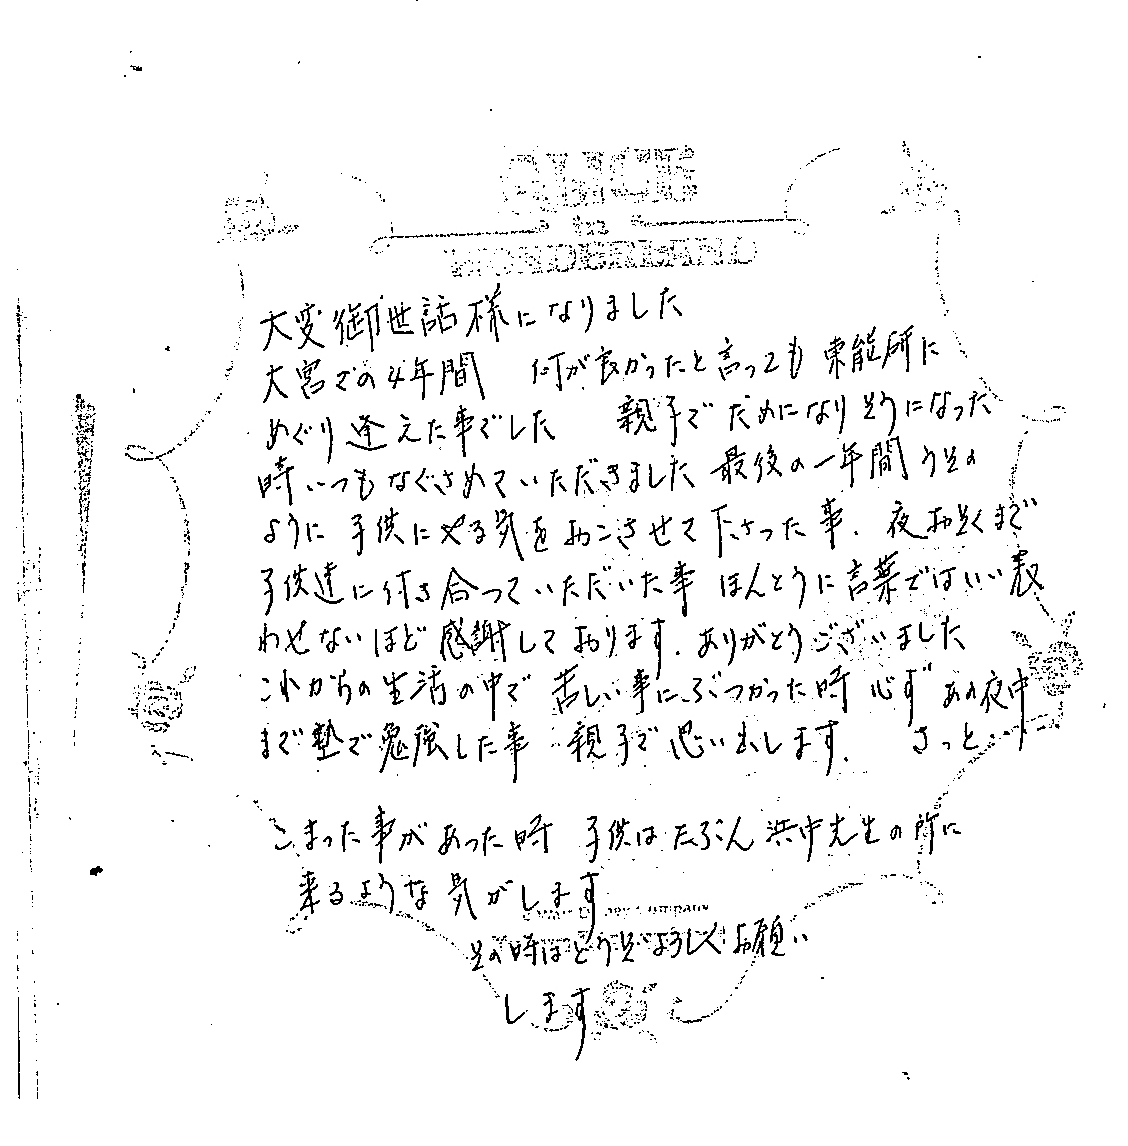 ALICE
in
WONDERLAND
大変御世話様になりました
大宮での4年間 何が良かったと言っても 東能所に
めぐり逢えた事でした 親子でだめになりそうになった
時いつもなぐさめていただきました 最後の一年間 うその
ように 子供にやる気をおこさせて下さった事. 夜おそくまで
子供達に付き合っていただいた事 ほんとうに言葉ではいい表
わせないほど感謝しております. ありがとうございました
これからの生活の中で 苦しい事にぶつかった時 必ず あの夜中
まで塾で勉強した事 親子で思い出します. きっと
こまった事があった時 子供はたぶん 浜中先生の所に
来るような気がします
Company
その時はどうぞよろしくお願い
します